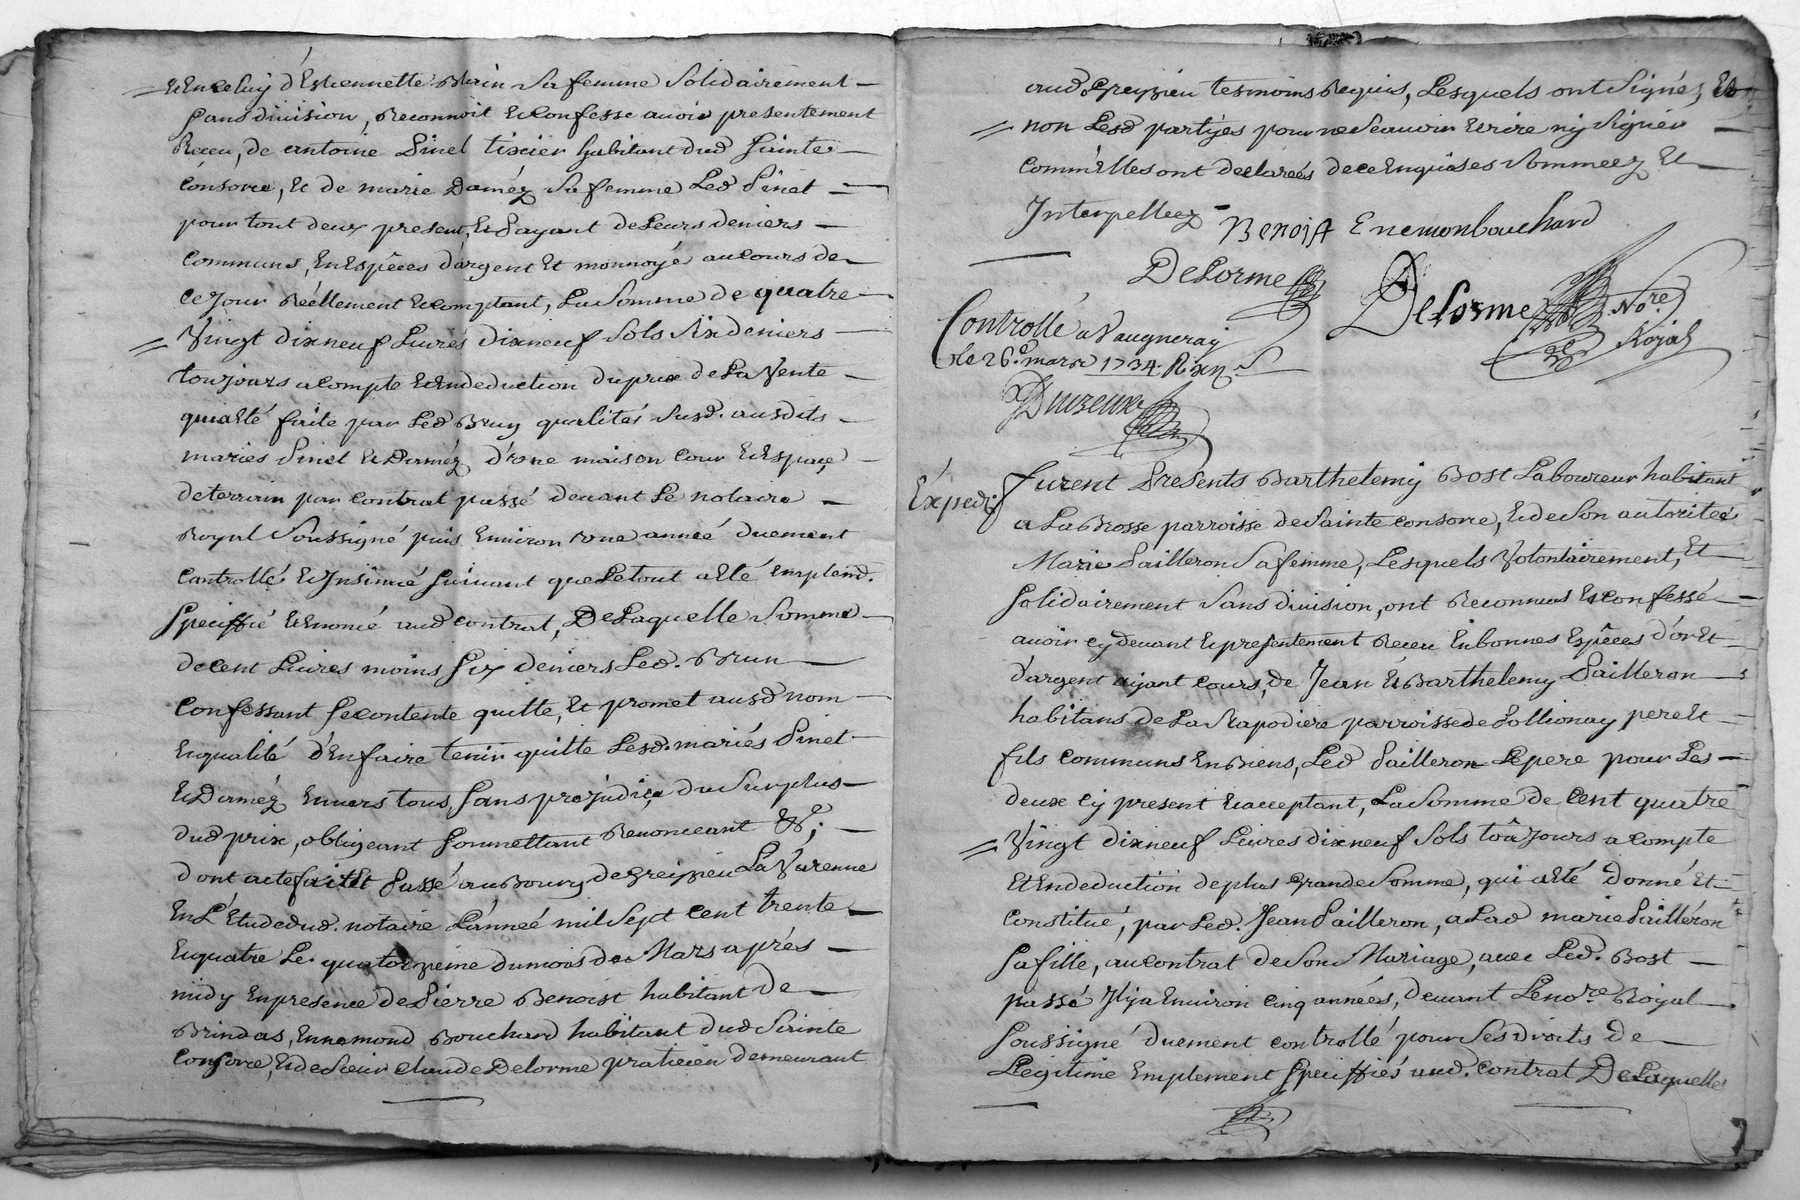 et en celuy d'Estiennette Blain sa femme solidairement
sans division, Reconnoit et confesse avoir presentement
Receu, de antoine Pinet tixier habitant dud sainte
consorce, et de marie Daméz sa femme Led Pinet
pour tout deux present, et Payant de Leurs deniers
communs, En Espêces d'argent Et monnoyé au cours de
ce Jour Réellement et comptant, La somme de quatre
Vingt dixneuf Livres dixneuf sols six deniers
toujours a compte et En deduction du prix de La Vente
qui a Eté faite par Led Brun qualités susd. ausdits
mariés Pinet et Daméz d'vne maison cour et Espaçe
de terrein par contrat passé devant Le notaire
Royal soussigné puis Environ vne année duement
controllé et Jnsinué suivant que Le tout a Eté Emplem.
speciffié et Enoncé aud contrat, De Laquelle somme
de cent Livres moins six deniers Led. Brun
confessant se contente quitte, et promet ausd nom
et qualité d'En faire tenir quitte Lesd. mariés Pinet
et Daméz Envers tous, sans prejudiçe du surplus
dud prix, obligeant soumettant Renonceant &c;
dont acte fait et Passé au Bourg de Greizieu La Varenne
En L'Etude dud. notaire L'année mil sept cent trente
et quatre Le quatorzieme du mois de Mars aprés
midy En presence de Pierre Benoist habitant de
Brindas, Ennemond Bouchard habitant dud Sainte
Consorce, et de sieur claude Delorme praticien demeurant
aud Greyzieu tesmoins Requis, Lesquels ont signés, Et
non Lesd partyes pour ne scavoir Ecrire ny signer
comm'Elles ont declareés de ce Enquises sommeez Et
Jnterpelleez
Benoist Enemonbouchard
Delorme
Delorme No.re
Royal
Controllé a Vaugneray
le 26.e mars 1734. R. xij s
Expedi.
furent Presents Barthelemy Bost Laboureur habitant
a La Brosse parroisse de Sainte consorce, et de son autorité
Marie Pailleron sa femme, Lesquels Volontairement, Et
solidairement sans division, ont Reconnus et confessé
avoir cy devant et presentement Receu En bonnes Espêces d'or Et
d'argent ayant cours, de Jean et Barthelemy Pailleron
habitans de La Rapodiere parroisse de Pollionay pere Et
fils communs En Biens, Led Pailleron Le pere pour Les
deux cy present et acceptant, La somme de Cent quatre
Vingt dixneuf Livres dixneuf sols toûjours a compte
Et En deduction de plus Grande somme, qui a Eté donné Et
constitué, par Led. Jean Pailleron, a Lad marie Pailleron
sa fille, au contrat de son Mariage, avec Led. Bost
passé Jl y a Environ cinq années, devant Le no.re Royal
soussigné duement controllé pour ses droits de
Legitime Emplement speciffiés aud. contrat De Laquelle